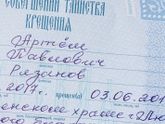 СОВЕРШЕНИИ ТАИНСТВА
КРЕЩЕНИЯ
Артём
Павлович
Рязанов
2017г. 03.06.201
енском храме